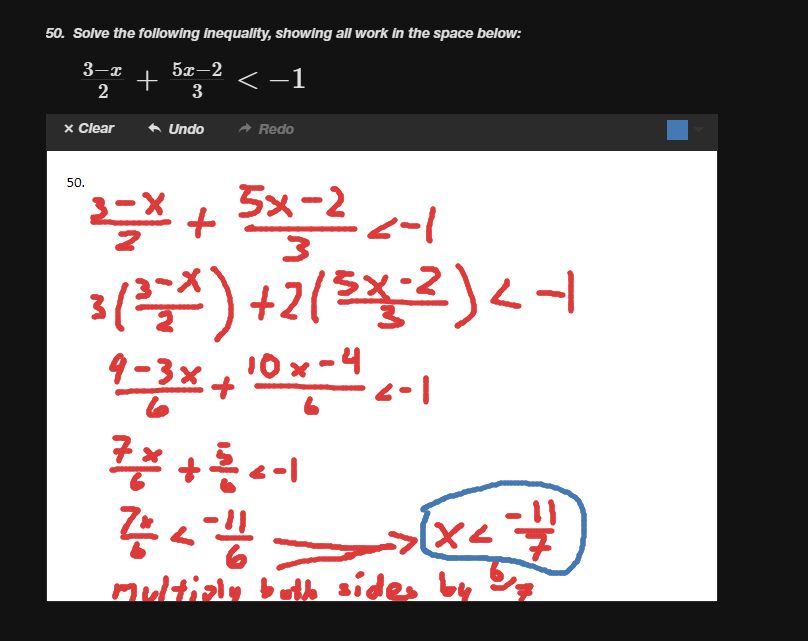 50. Solve the following inequality, showing all work in the space below:
3−x/2 + 5x−2/3 < −1
× Clear Undo Redo
50.
3−x/2 + 5x−2/3 < −1
3(3−x/2) + 2(5x−2/3) < −1
9−3x/6 + 10x−4/6 < −1
7x/6 + 5/6 < −1
7x/6 < −11/6 → x < −11/7
multiply both sides by 6/7